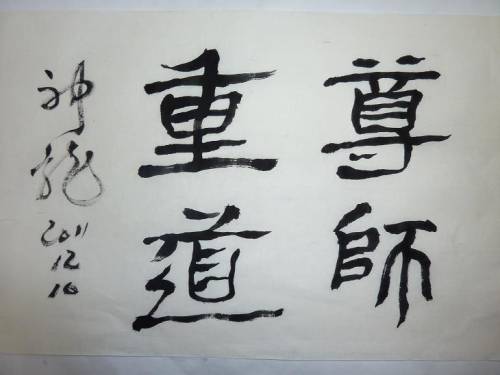 尊師
重道
神龍
2011
12
10